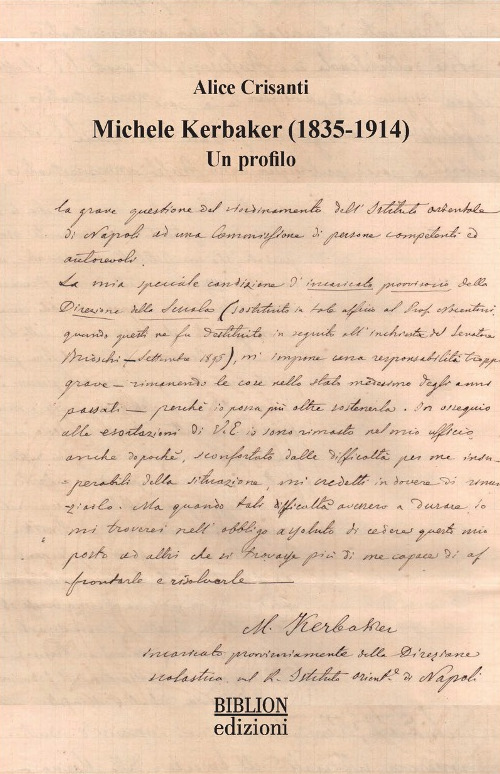 Alice Crisanti
Michele Kerbaker (1835-1914)
Un profilo
la grave questione del riordinamento dell'Istituto orientale
di Napoli ad una Commissione di persone competenti ed
autorevoli.
La mia speciale condizione d'incaricato provvisorio della
Direzione della Scuola (sostituito in tale ufficio al Prof. Nocentini,
quando questi ne fu destituito in seguito all'inchiesta del Senatore
Brioschi - Settembre 1895), m'impone una responsabilità troppo
grave — rimanendo le cose nello stato medesimo degli anni
passati — perchè io possa più oltre sostenerla. In ossequio
alle esortazioni di V.E. io sono rimasto nel mio ufficio,
anche dopochè, sconfortato dalle difficoltà per me insu-
perabili della situazione, mi credetti in dovere di rinun
ziarlo. Ma quando tali difficoltà avessero a durare, io
mi troverei nell'obbligo assoluto di cedere questo mio
posto ad altri che si trovasse più di me capace di af
frontarle e risolverle —
M. Kerbaker
incaricato provvisoriamente della Direzione
scolastica nel R. Istituto orient.e di Napoli
BIBLION
edizioni